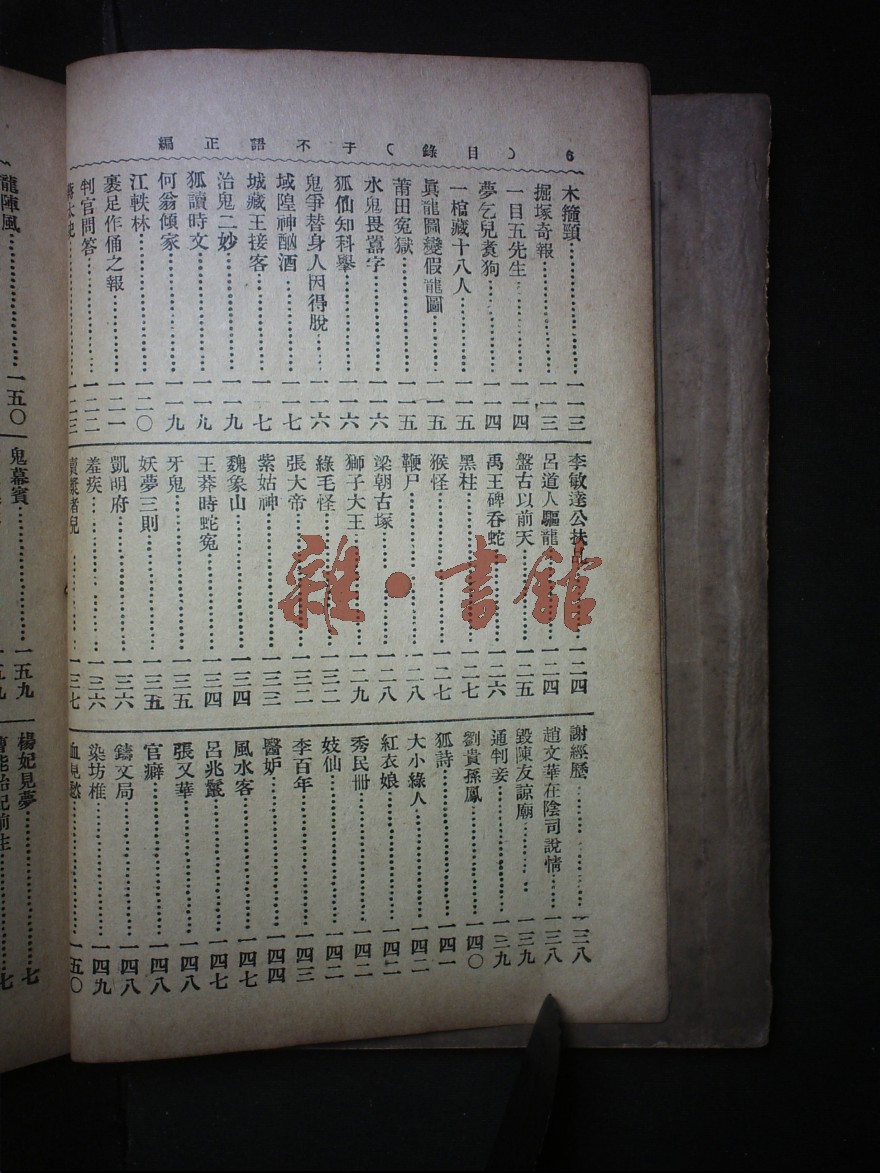 編正語不子(目錄) 6
木箍頸 一一三
掘塚奇報 一一三
一目五先生 一一四
夢乞兒煮狗 一一四
一棺藏十八人 一一五
眞龍圖變假龍圖 一一五
莆田冤獄 一一五
水鬼畏嚣字 一一六
狐仙知科舉 一一六
鬼爭替身人因得脫 一一六
城隍神酗酒 一一七
城藏王接客 一一七
治鬼二妙 一一九
狐讀時文 一一九
何翁傾家 一一九
江軼林 一二〇
裹足作俑之報 一二一
判官問答 一二二
一二三
李敏達公扶 一二四
呂道人驅龍 一二四
盤古以前天 一二五
禹王碑吞蛇 一二六
黑柱 一二七
猴怪 一二七
鞭尸 一二八
梁朝古塚 一二八
獅子大王 一二九
綠毛怪 一三二
張大帝 一三二
紫姑神 一三三
魏象山 一三四
王莽時蛇冤 一三四
牙鬼 一三五
妖夢三則 一三五
凱明府 一三六
羞疾 一三六
一三七
謝經歷 一三八
趙文華在陰司說情 一三八
毀陳友諒廟 一三九
通判妾 一三九
劉貴孫鳳 一四〇
狐詩 一四一
大小綠人 一四二
紅衣娘 一四二
秀民冊 一四二
妓仙 一四二
李百年 一四三
醫妒 一四四
風水客 一四七
呂兆鬣 一四七
張又華 一四八
官癖 一四八
鑄文局 一四八
染坊椎 一四九
血見愁 一五〇
龍陣風 一五〇
鬼幕賓 一五九
一五九
楊妃見夢 七
曹能始記前生 七
雜·書館